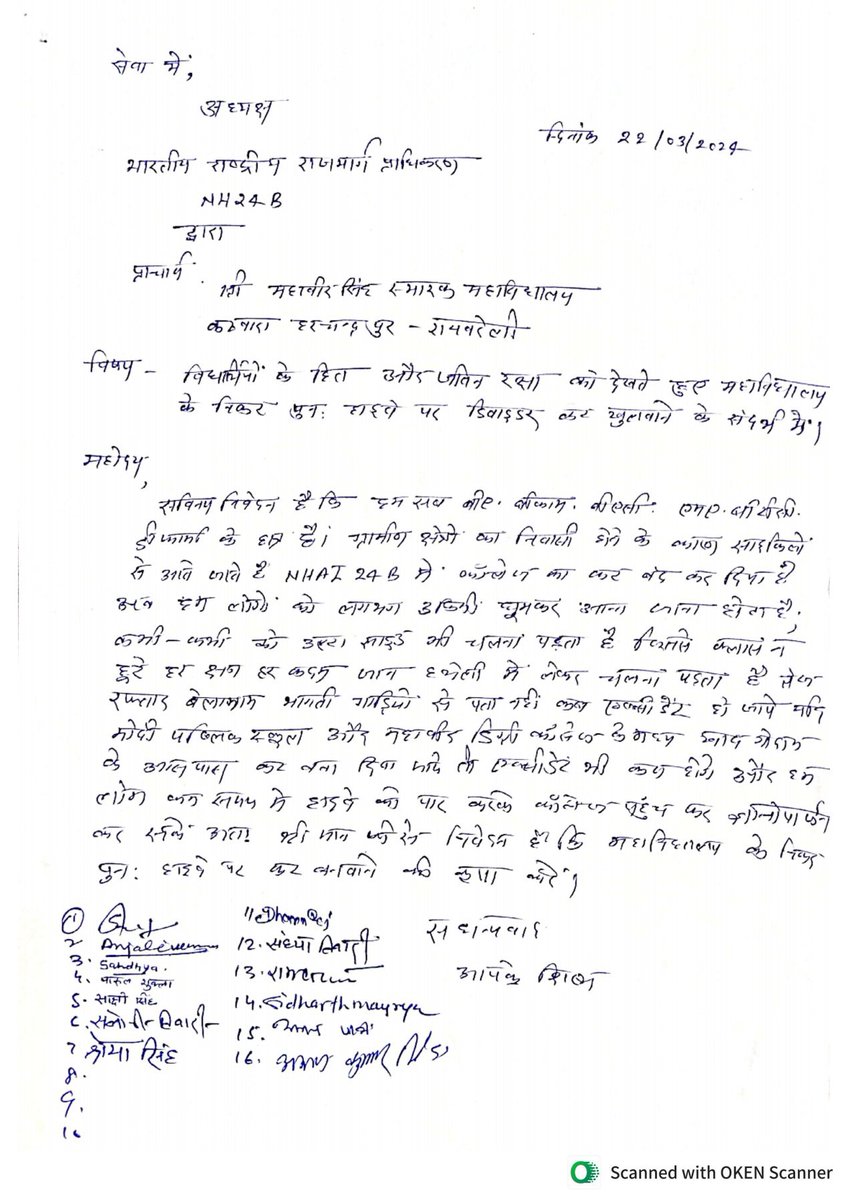 सेवा में,
अध्यक्ष
दिनांक 22/03/2024
भारतीय राष्ट्रीय राजमार्ग प्राधिकरण
NH24B
द्वारा
प्राचार्य
श्री महावीर सिंह स्मारक महाविद्यालय
कठवारा हरचन्दपुर - रायबरेली
विषय - विद्यार्थियों के हित और जीवन रक्षा को देखते हुए महाविद्यालय
के निकट पुनः हाइवे पर डिवाइडर कट खुलवाने के संदर्भ में।
महोदय,
सविनय निवेदन है कि हम सब बीए. बीकाम. एमए.
डी फार्मा के छात्र हैं। ग्रामीण क्षेत्रो का निवासी होने के कारण साइकिलों
से आते जाते है NHAI 24B में कॉलेज का कट बंद कर दिया है
अब हम लोगो को लगभग घूमकर आना जाना होता है,
कभी-कभी को उल्टा साइड भी चलना पड़ता है
हर क्षण हर कदम जान हथेली में लेकर चलना पड़ता है तेज
रफ्तार बेलगाम भागती गाड़ियो से पता नहीं कब एक्सीडेंट हो जाये यदि
मोदी पब्लिक स्कूल और महावीर डिग्री कॉलेज के मध्य
के आसपास कट बना दिया जाये तो एक्सीडेंट भी कम होंगे और हम
लोग कम समय में हाइवे को पार करके कॉलेज पहुंच कर
कर सकें अतः श्री मान जी से निवेदन है कि महाविद्यालय के निकट
पुनः हाइवे पर कट बनवाने की कृपा करें।
सधन्यवाद
आपके शिष्य
1
2
3. Sandhya.
4. पारुल शुक्ला
5. साक्षी सिंह
6.
7 श्रेया सिंह
8.
9.
11 Dhannoej
12. संध्या
13.
14. Sidharth mayrya
15.
16. कुमार
Scanned with OKEN Scanner